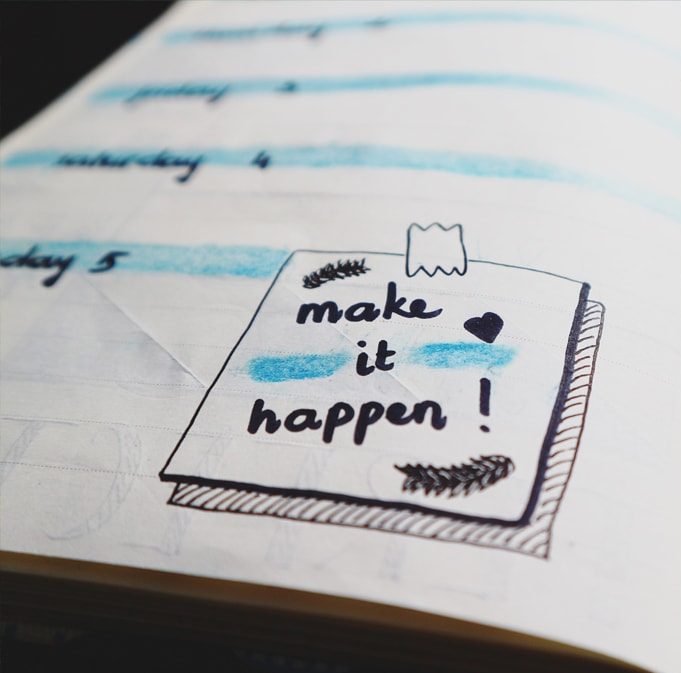 friday 3
saturday 4
day 5
make
it
happen!